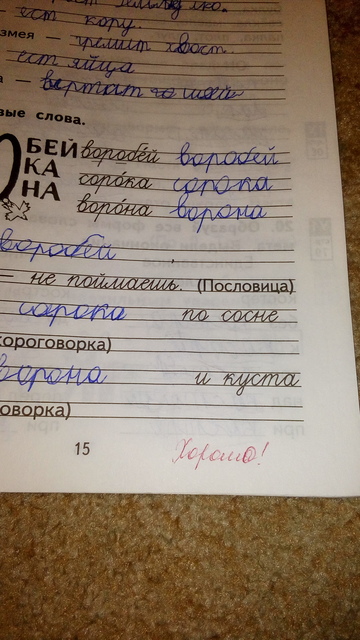 ест кору.
змея –
хвост
ест яйца
вые слова.
БЕЙ воробе́й воробей
КА соро́ка сорока
НА воро́на ворона
воробей
– не поймаешь. (Пословица)
сорока по сосне
короговорка)
ворона и куста
оворка)
15 Хорошо!